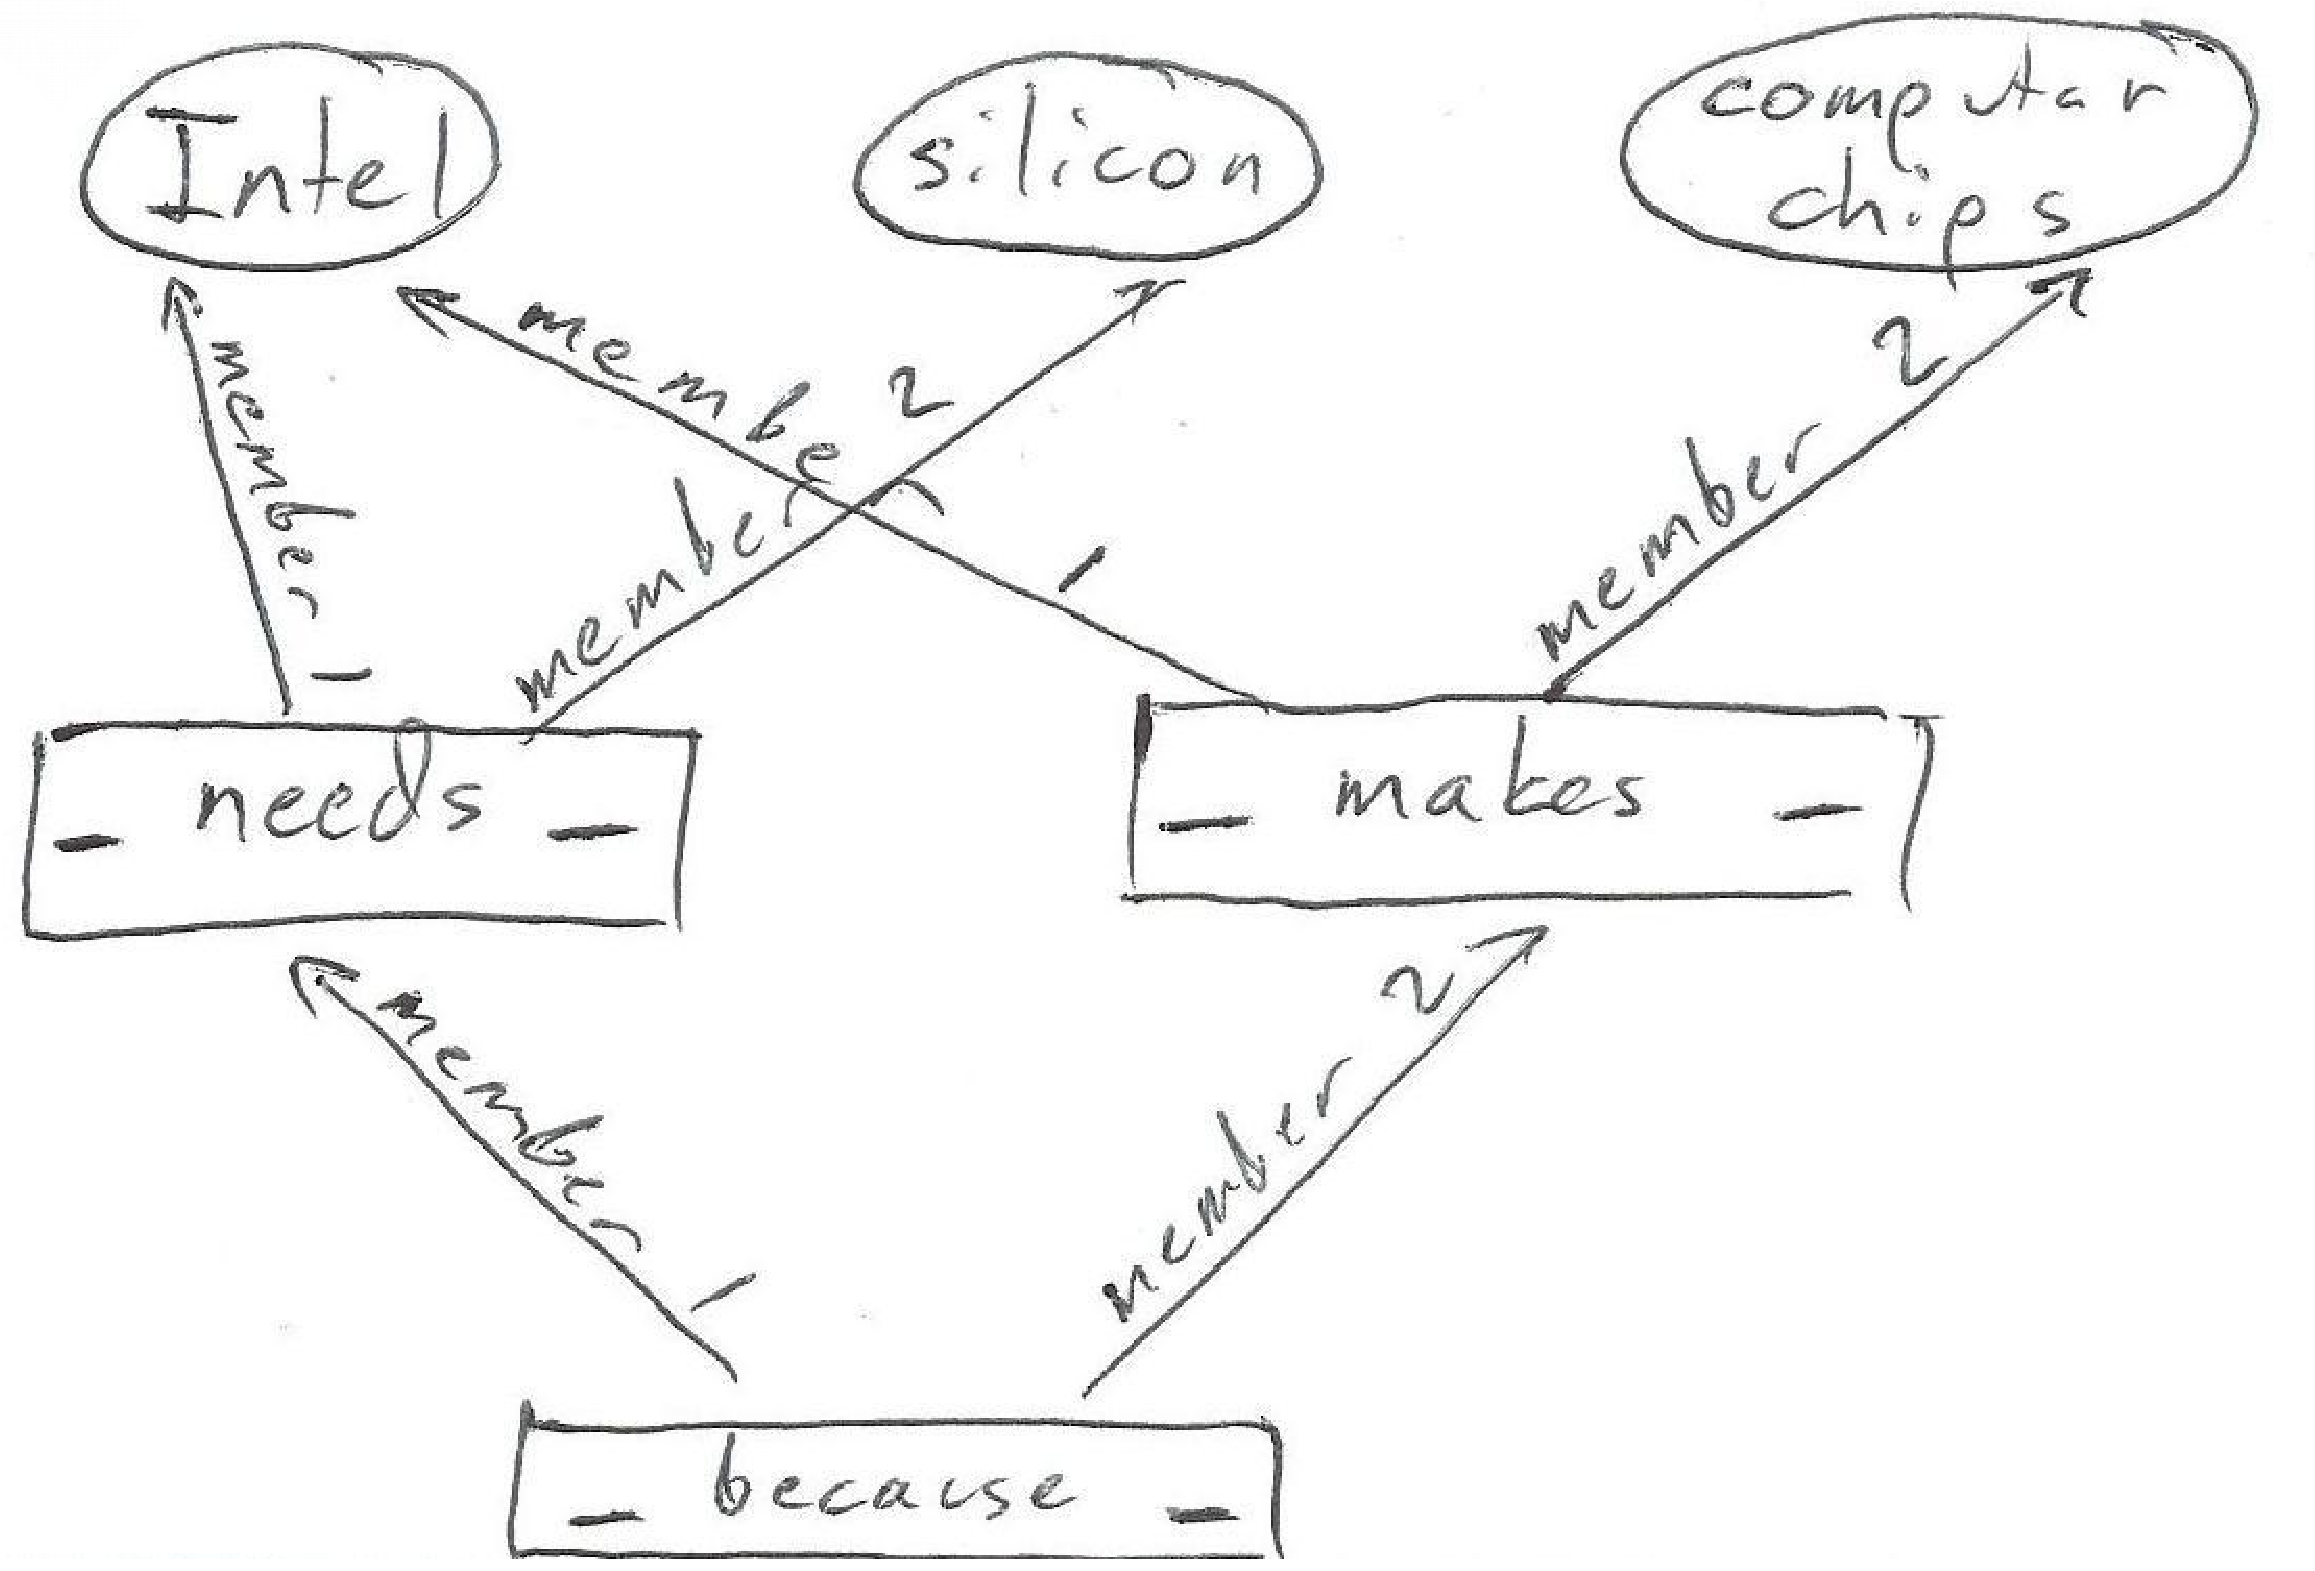 Intel
silicon
computer
chips
member 1
member 2
member 1
member 2
_ needs _
_ makes _
member 1
member 2
_ because _